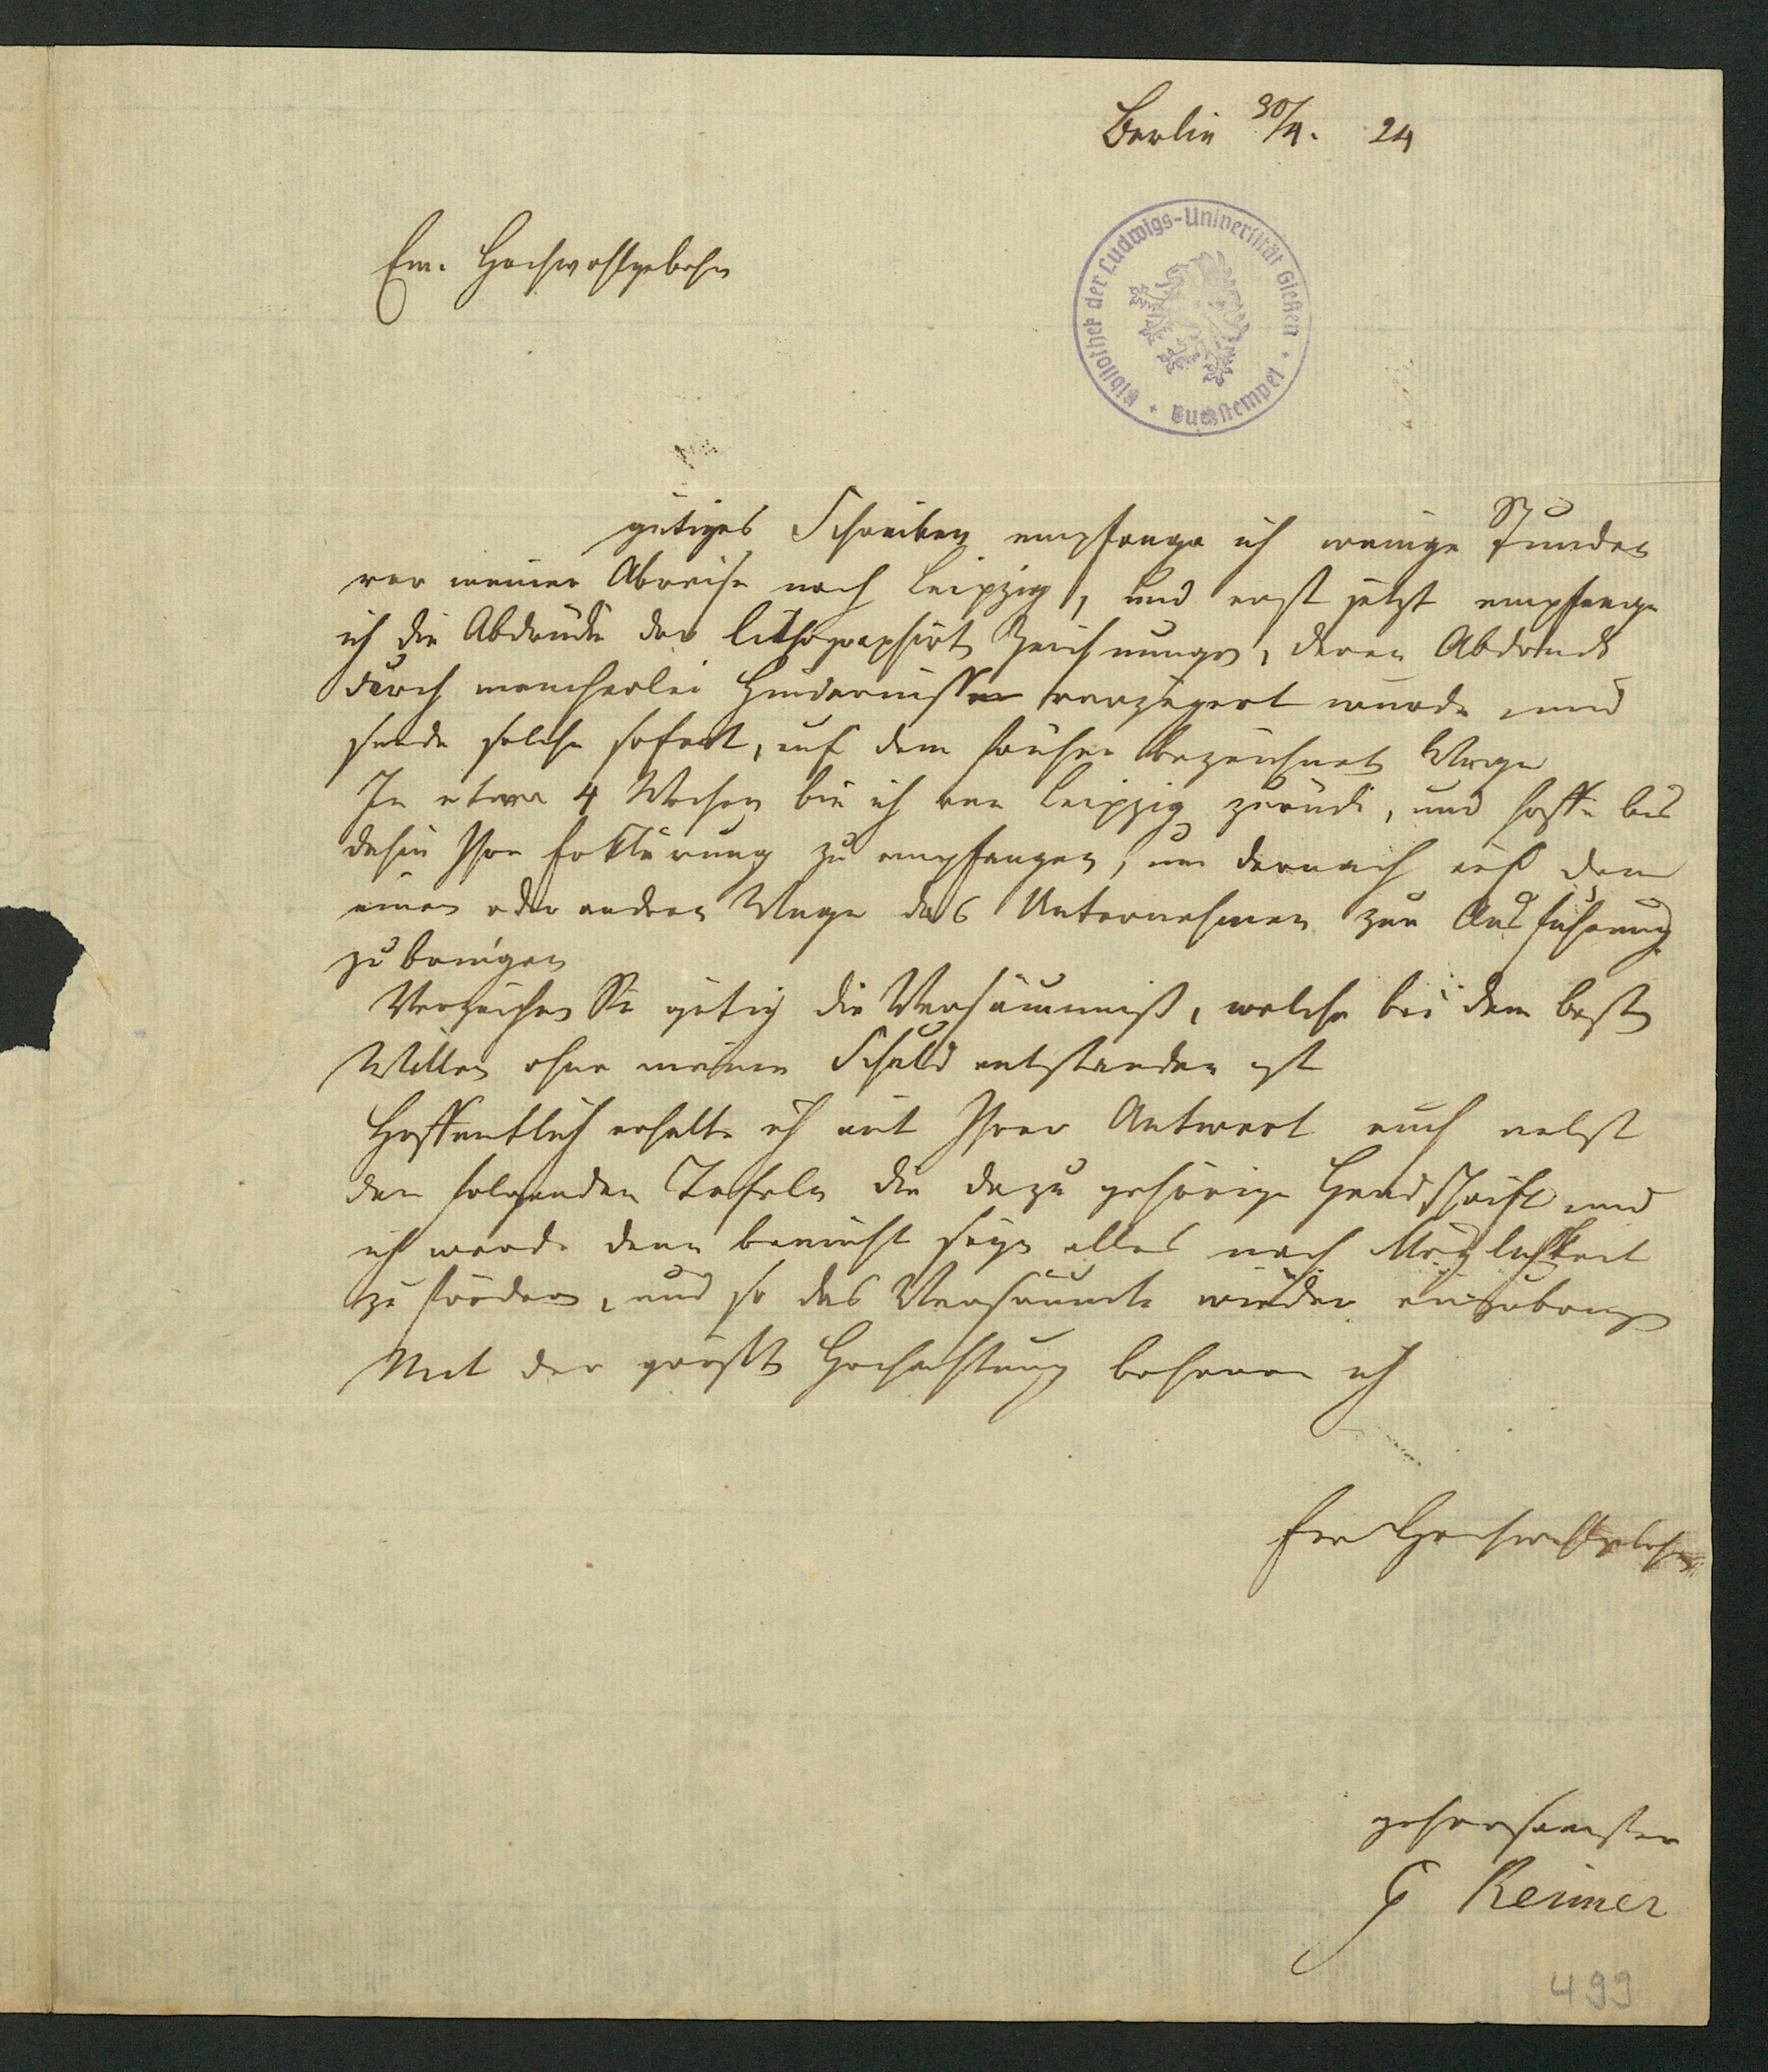 Berlin 30/4. 24
Ew. Hochwohlgebohrn
Bibliothek der Ludwigs-Universität Gießen
Buchstempel
gütiges Schreiben empfange ich wenige Stunden
vor meiner Abreise nach Leipzig, und erst jetzt empfange
ich die Abdrücke der lithographirten Zeichnungen, deren Abdruck
durch mancherlei Hindernisse verzögert wurde und
sende solche sofort, auf dem früher bezeichneten Wege
In etwa 4 Wochen bin ich von Leipzig zurück, und hoffe bis
dahin Ihre Erklärung zu empfangen, um darnach auf dem
einen oder andern Wege das Unternehmen zur Ausführung
zu bringen
Verzeihen Sie gütig die Versäumniß, welche bei dem besten
Willen ohne meine Schuld entstanden ist
Hoffentlich erhalte ich mit Ihrer Antwort auch nebst
den folgenden Tafeln die dazu gehörige Handschrift und
ich werde dann bemüht seyn alles nach Möglichkeit
zu fördern, und so das Versäumte wieder einzubringen
Mit der größten Hochachtung beharre ich
Ew Hochwohlgebohrn
gehorsamster
G Reimer
499